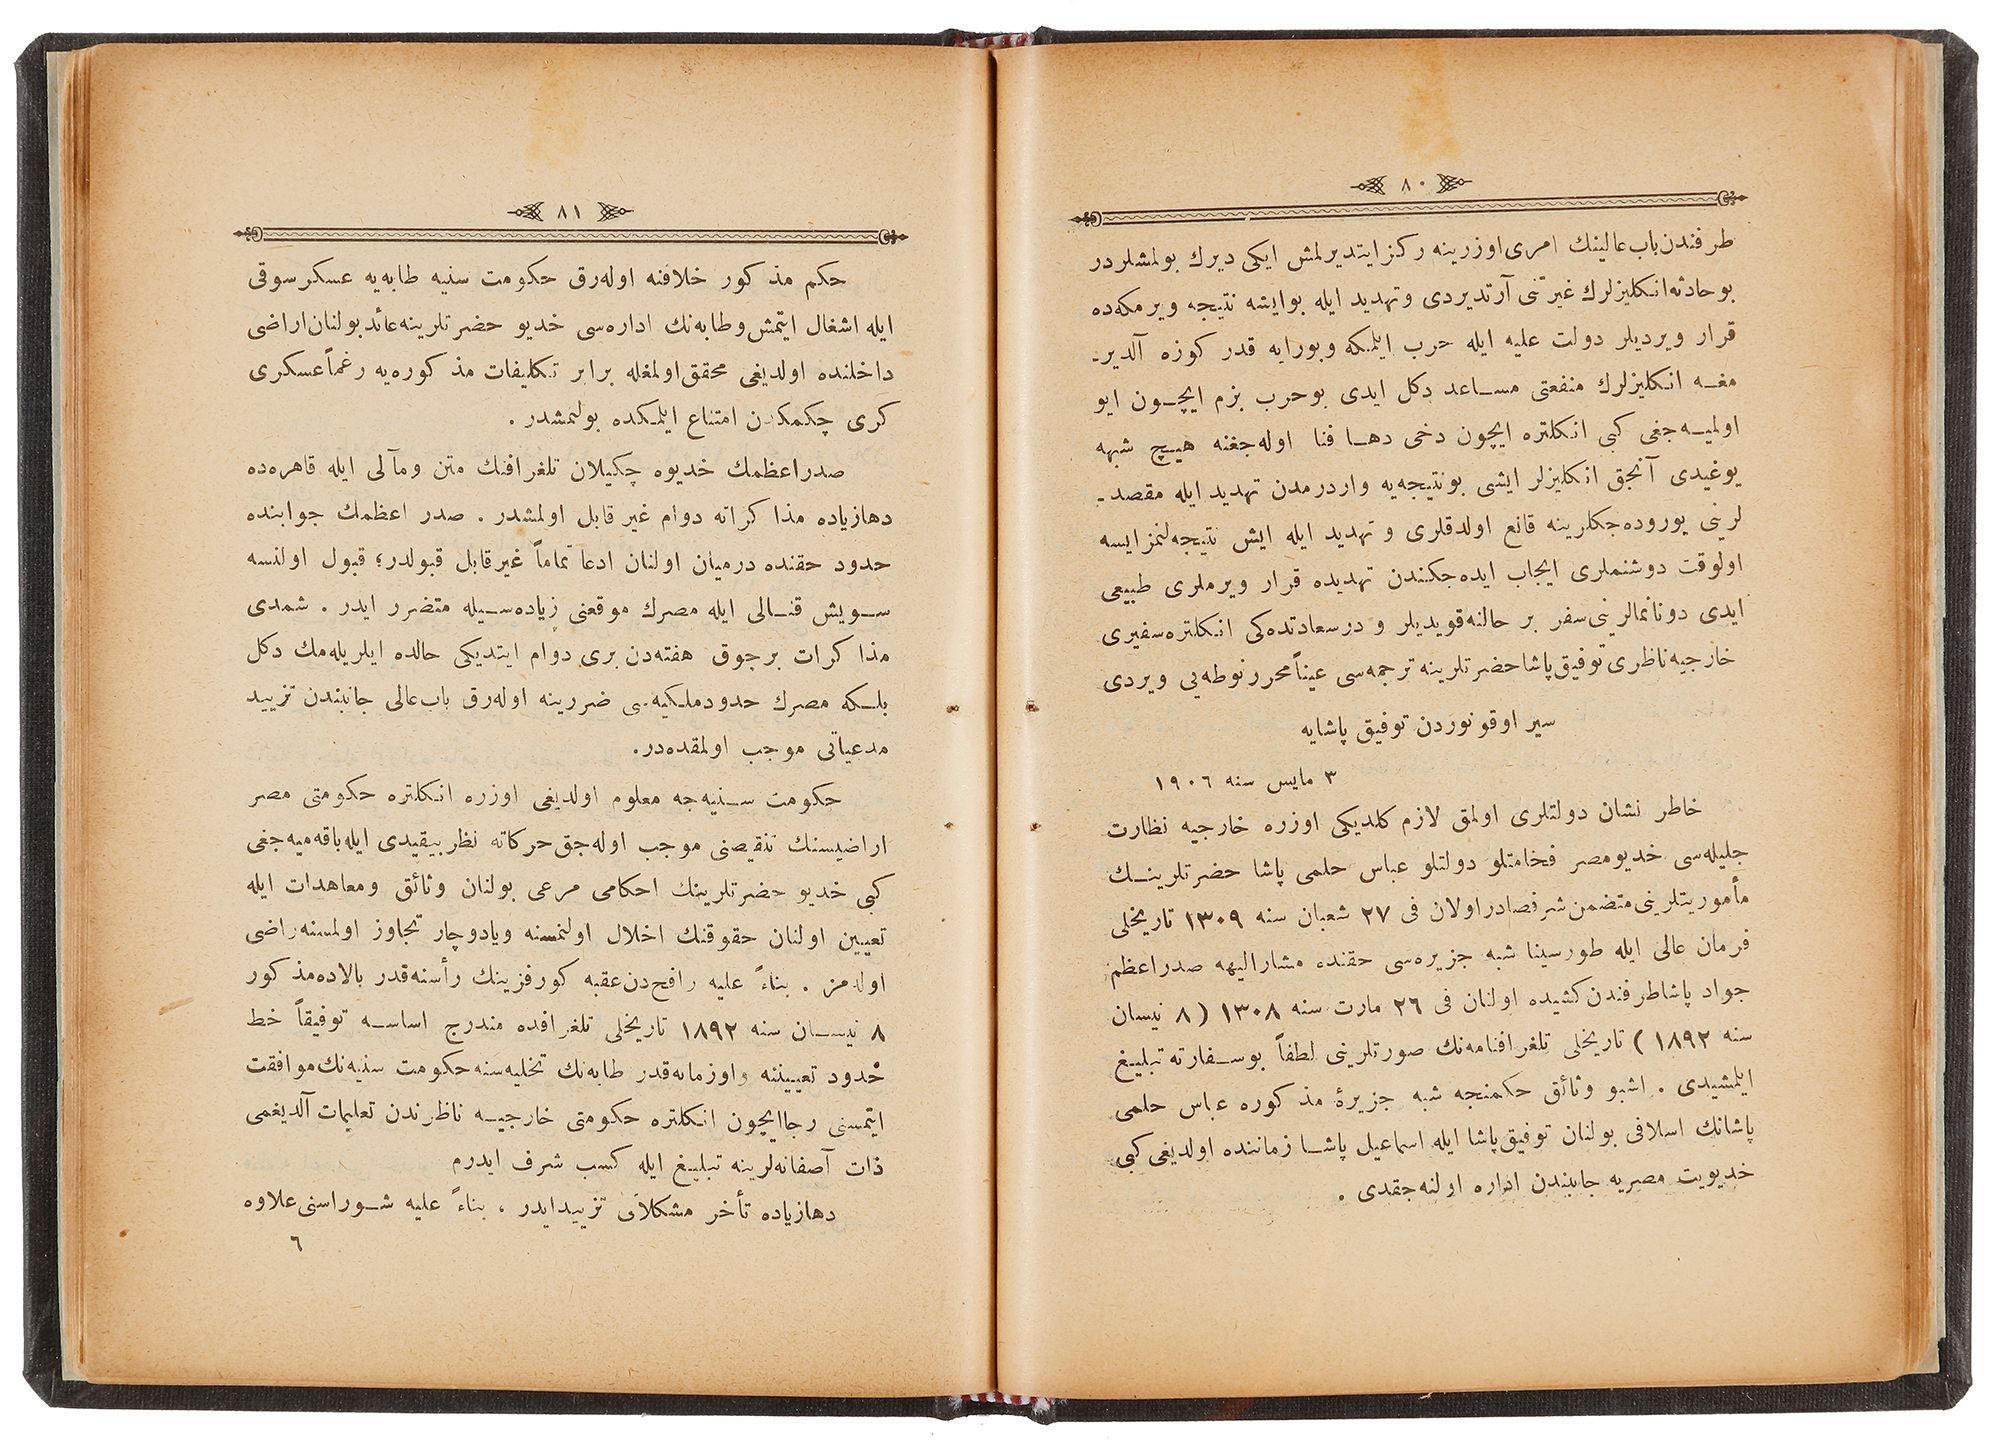 ٨٠
طرفندن باب عالینك امری اوزرینه رکز ایتدیرلمش ایکی دیرك بولمشلردر
بو حادثه انکلیزلرك غیرتنی آرتدیردی و تهدید ایله بو ایشه نتیجه ویرمکه ده
قرار ویردیلر دولت علیه ایله حرب ایلمکه و بورایه قدر کوزه آلدیر۔
مغه انکلیزلرك منفعتی مساعد دکل ایدی بو حرب بزم ایچون ایو
اولمیه جغی کبی انکلتره ایچون دخی دها فنا اوله جغنه هیچ شبهه
یوغیدی آنجق انکلیزلر ایشی بو نتیجه یه واردرمدن تهدید ایله مقصد۔
لرنی یوروده جکلرینه قانع اولدقلری و تهدید ایله ایش نتیجه لنمز ایسه
اولوقت دوشنملری ایجاب ایده جکندن تهدیده قرار ویرملری طبیعی
ایدی دونانمالرینی سفر بر حالنه قویدیلر و درسعادتده کی انکلتره سفیری
خارجیه ناظری توفیق پاشا حضرتلرینه ترجمه سی عیناً محرر نوطه یی ویردی
سیر اوقونوردن توفیق پاشایه
٣ مایس سنه ١٩٠٦
خاطر نشان دولتلری اولمق لازم کلدیکی اوزره خارجیه نظارت
جلیله سی خدیو مصر فخامتلو دولتلو عباس حلمی پاشا حضرتلرینك
مأموریتلرینی متضمن شرفصادر اولان فی ٢٧ شعبان سنه ١٣٠٩ تاریخلی
فرمان عالی ایله طور سینا شبه جزیره سی حقنده مشارالیهه صدراعظم
جواد پاشا طرفندن کشیده اولنان فی ٢٦ مارت سنه ١٣٠٨ ( ٨ نیسان
سنه ١٨٩٢ ) تاریخلی تلغرافنامه نك صورتلرینی لطفاً بو سفارته تبلیغ
ایلمشیدی . اشبو وثائق حکمنجه شبه جزیرۀ مذکوره عباس حلمی
پاشانك اسلافی بولنان توفیق پاشا ایله اسماعیل پاشا زماننده اولدیغی کبی
خدیویت مصریه جانبندن اداره اولنه جقدی .
٨١
حکم مذکور خلافنه اوله رق حکومت سنیه طابه یه عسکر سوقی
ایله اشغال ایتمش و طابه نك اداره سی خدیو حضرتلرینه عائد بولنان اراضی
داخلنده اولدیغی محقق اولمغله برابر تکلیفات مذکوره یه رغماً عسکری
کری چکمکدن امتناع ایلمکده بولنمشدر .
صدراعظمك خدیوه چکیلان تلغرافنك متن و مآلی ایله قاهره ده
دها زیاده مذاکراته دوام غیر قابل اولمشدر . صدر اعظمك جوابنده
حدود حقنده درمیان اولنان ادعا تماماً غیر قابل قبولدر؛ قبول اولنسه
سویش قنالی ایله مصرك موقعنی زیاده سیله متضرر ایدر . شمدی
مذاکرات برچوق هفته دن بری دوام ایتدیکی حالده ایلریله مك دکل
بلکه مصرك حدود ملکیه سی ضررینه اوله رق باب عالی جانبندن تزیید
مدعیاتی موجب اولمقده در.
حکومت سنیه جه معلوم اولدیغی اوزره انکلتره حکومتی مصر
اراضیسنك تنقیصنی موجب اوله جق حرکاته نظر بیقیدی ایله باقه میه جغی
کبی خدیو حضرتلرینك احکامی مرعی بولنان وثائق و معاهدات ایله
تعیین اولنان حقوقنك اخلال اولنمسنه و یا دوچار تجاوز اولمسنه راضی
اوله مز . بناءً علیه رافح دن عقبه کورفزینك رأسنه قدر بالاده مذکور
٨ نیسان سنه ١٨٩٢ تاریخلی تلغرافده مندرج اساسه توفیقاً خط
حدود تعییننه و او زمانه قدر طابه نك تخلیه سنه حکومت سنیه نك موافقت
ایتمسنی رجا ایچون انکلتره حکومتی خارجیه ناظرندن تعلیمات آلدیغمی
ذات آصفانه لرینه تبلیغ ایله کسب شرف ایدرم
دها زیاده تأخر مشکلاتی تزیید ایدر ، بناءً علیه شوراسنی علاوه
٦